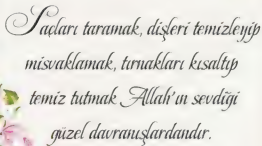 Saçları taramak, dişleri temizleyip
misvaklamak, tırnakları kısaltıp
temiz tutmak Allah'ın sevdiği
güzel davranışlardandır.